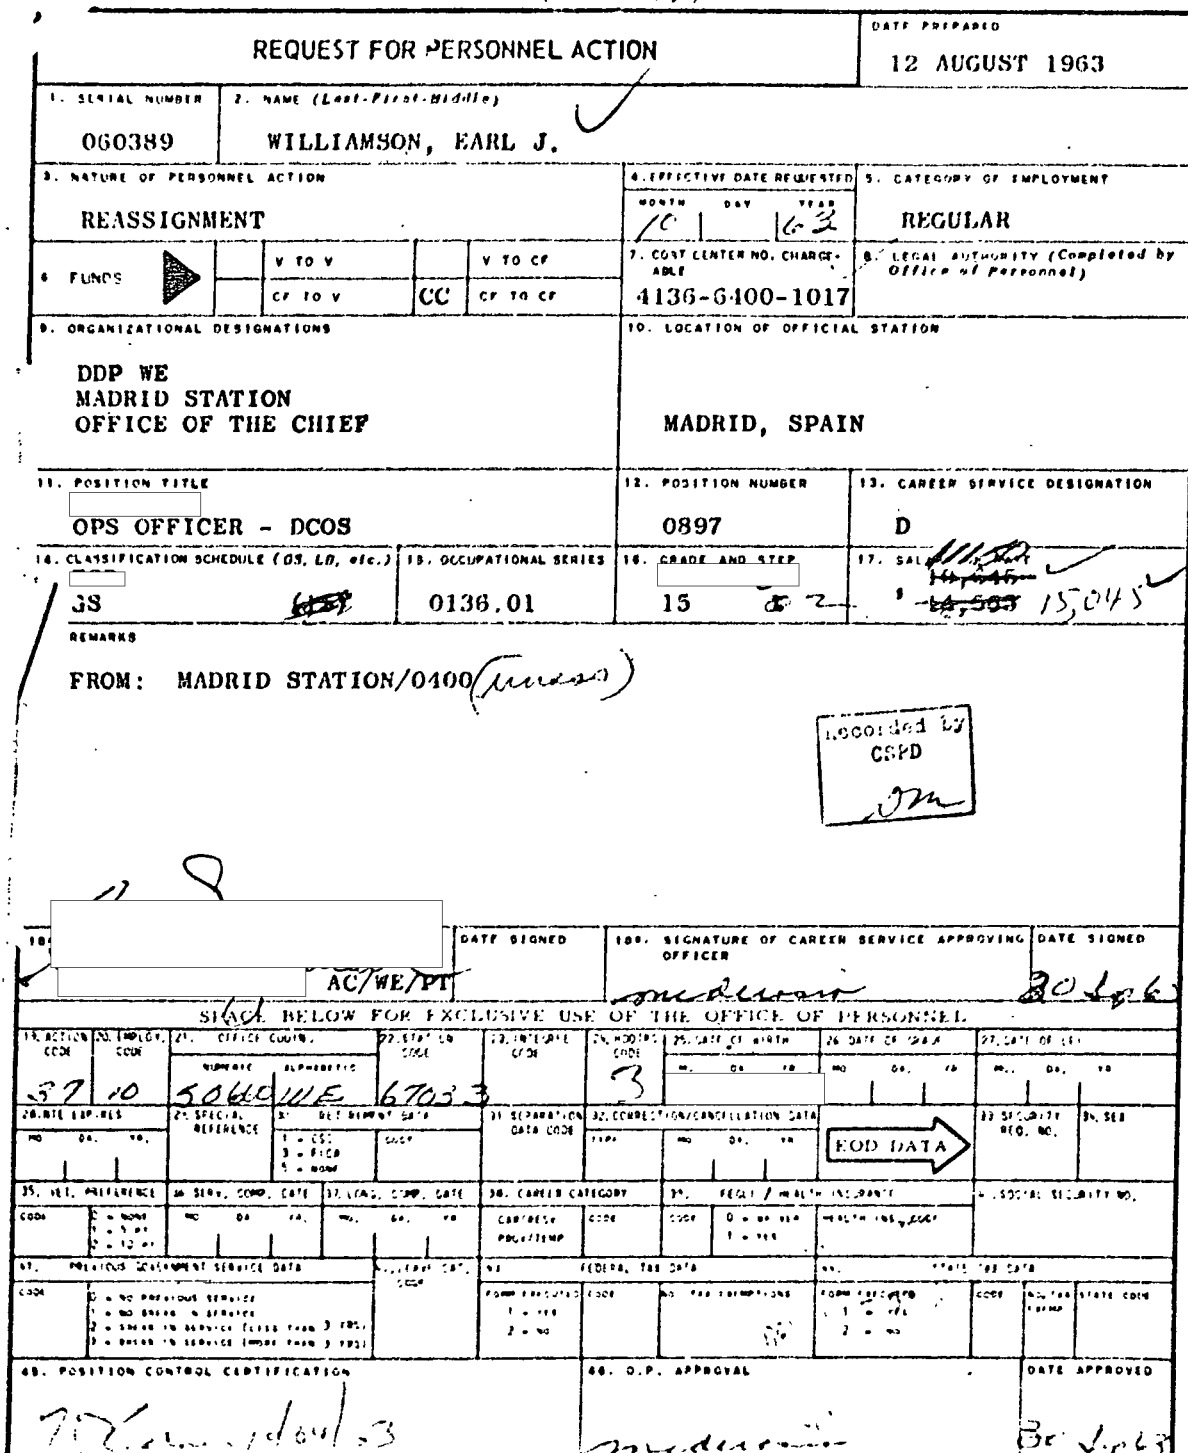 REQUEST FOR PERSONNEL ACTION
DATE PREPARED
12 AUGUST 1963
1. SERIAL NUMBER
060389
2. NAME (Last-First-Middle)
WILLIAMSON, EARL J.
3. NATURE OF PERSONNEL ACTION
REASSIGNMENT
4. EFFECTIVE DATE REQUESTED
MONTH DAY YEAR
10 63
5. CATEGORY OF EMPLOYMENT
REGULAR
6 FUNDS
V TO V
V TO CF
CF TO V
CC
CF TO CF
7. COST CENTER NO. CHARGE-
ABLE
4136-6400-1017
8. LEGAL AUTHORITY (Completed by
Office of Personnel)
9. ORGANIZATIONAL DESIGNATIONS
DDP WE
MADRID STATION
OFFICE OF THE CHIEF
10. LOCATION OF OFFICIAL STATION
MADRID, SPAIN
11. POSITION TITLE
OPS OFFICER - DCOS
12. POSITION NUMBER
0897
13. CAREER SERVICE DESIGNATION
D
14. CLASSIFICATION SCHEDULE (GS, LB, etc.)
GS
15. OCCUPATIONAL SERIES
0136.01
16. GRADE AND STEP
15 2
17.
$ 15,045
REMARKS
FROM: MADRID STATION/0400
Recorded by
CSPD
DATE SIGNED
AC/WE/PT
18B. SIGNATURE OF CAREER SERVICE APPROVING
OFFICER
DATE SIGNED
30 Sep 63
SPACE BELOW FOR EXCLUSIVE USE OF THE OFFICE OF PERSONNEL
19. ACTION
CODE
37
20. EMPLOY.
CODE
10
21. OFFICE CODING
NUMERIC ALPHABETIC
WE
22. STATION
CODE
67033
23. INTEGREE
CODE
24. HDQTRS
CODE
3
25. DATE OF BIRTH
MO. DA. YR.
26. DATE OF GRADE
MO. DA. YR.
27. DATE OF LEI
MO. DA. YR.
28. NTE EXPIRES
MO. DA. YR.
29. SPECIAL
REFERENCE
30. RETIREMENT DATA
1 - CSC
3 - FICA
5 - NONE
CODE
31. SEPARATION
DATA CODE
32. CORRECTION/CANCELLATION DATA
TYPE MO. DA. YR.
EOD DATA
33. SECURITY
REQ. NO.
34. SEX
35. VET. PREFERENCE
CODE
0 - NONE
1 - 5 PT
2 - 10 PT
36. SERV. COMP. DATE
MO. DA. YR.
37. LONG. COMP. DATE
MO. DA. YR.
38. CAREER CATEGORY
CAR/RESV
PROV/TEMP
CODE
39. FEGLI / HEALTH INSURANCE
CODE
0 - WAIVER
1 - YES
HEALTH INS. CODE
40. SOCIAL SECURITY NO.
41. PREVIOUS GOVERNMENT SERVICE DATA
CODE
0 - NO PREVIOUS SERVICE
1 - NO BREAK IN SERVICE
2 - BREAK IN SERVICE (LESS THAN 3 YRS)
3 - BREAK IN SERVICE (MORE THAN 3 YRS)
42. LEAVE CAT.
CODE
43. FEDERAL TAX DATA
FORM EXECUTED
1 - YES
2 - NO
CODE
NO. TAX EXEMPTIONS
44. STATE TAX DATA
FORM EXECUTED
1 - YES
2 - NO
CODE
NO. TAX
EXEMP
STATE CODE
45. POSITION CONTROL CERTIFICATION
46. O.P. APPROVAL
DATE APPROVED
30 Sep 63